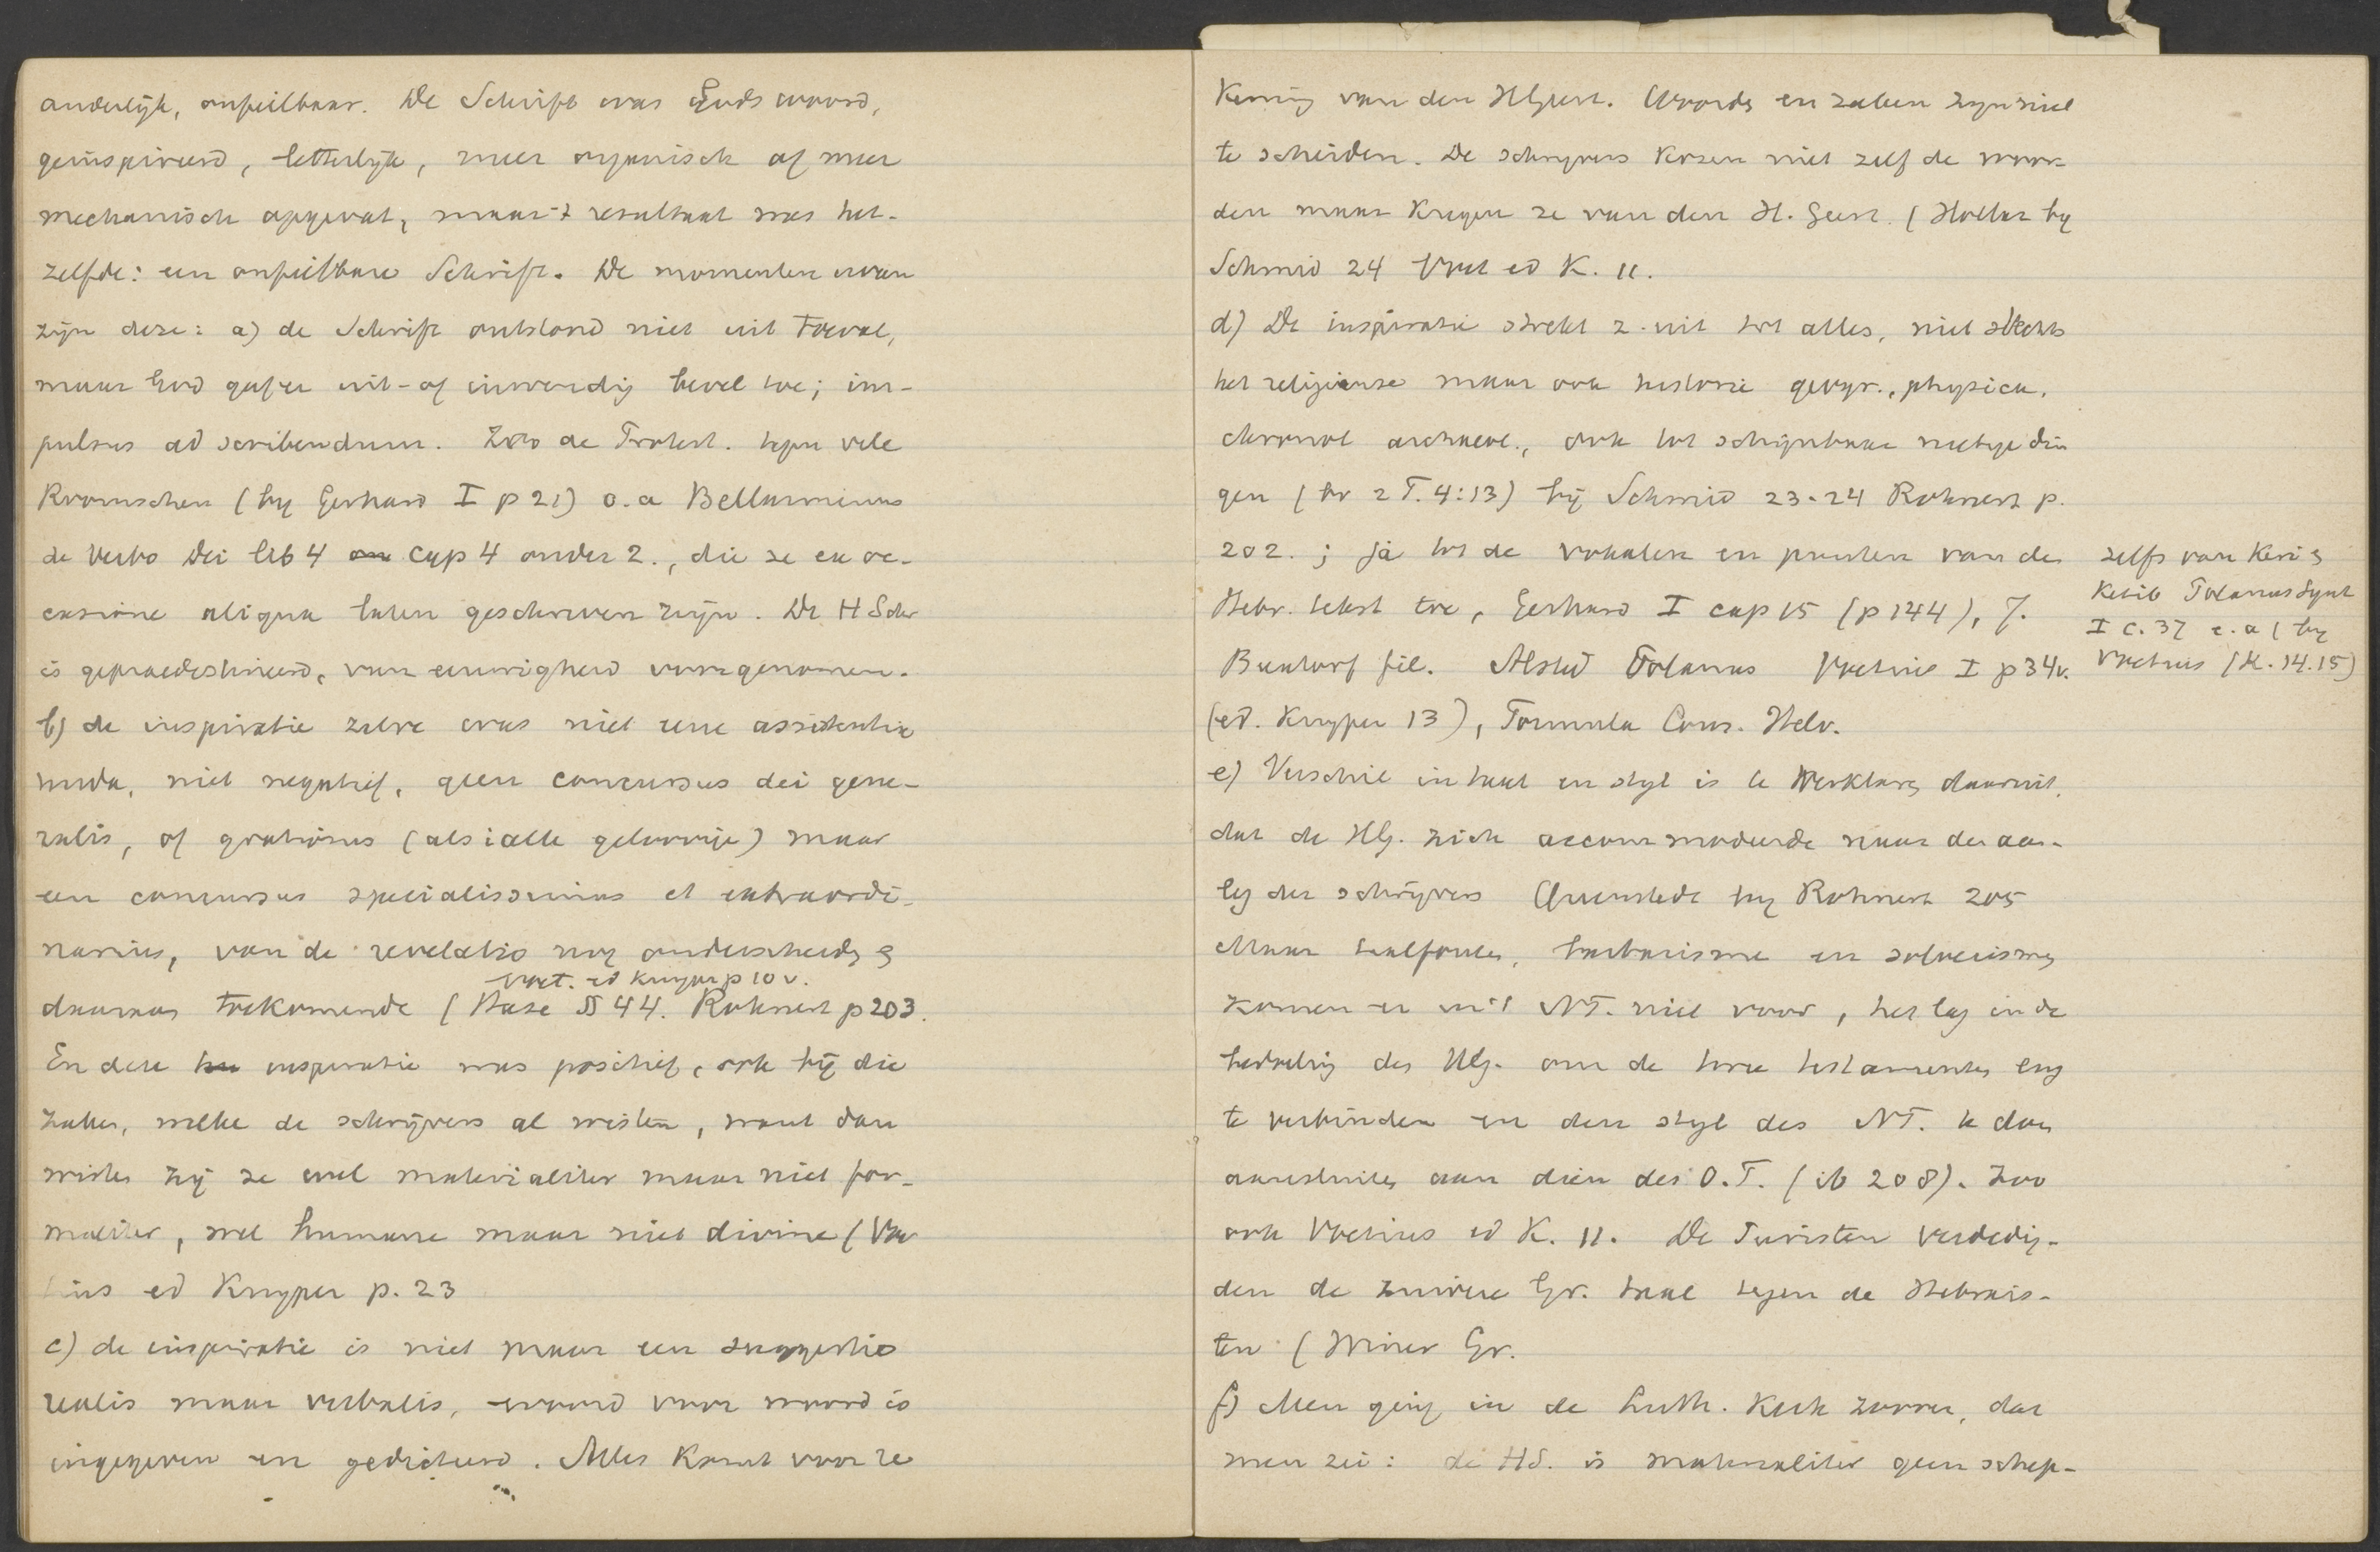 anderlijk, onfeilbaar. De Schrift was Gods woord,
geïnspireerd, letterlijk, meer organisch of meer
mechanisch opgevat, maar 't resultaat was het-
zelfde: een onfeilbare Schrift. De momenten ervan
zijn deze: a) de Schrift ontstond niet uit toeval,
maar God gaf er uit- of inwendig bevel toe; im-
pulsus ad scribendum. Zoo de Protest. tegen vele
Roomschen (by Gerhard I p 21) o.a Bellarminus
de Verbo Dei lib 4 cap 4 onder 2., die ze ex oc-
casione aliqua laten geschreven zijn. De H Schr
is gepraedestineerd, van eeuwigheid voorgenomen.
b) de inspiratie zelve was niet eene assistentia
nuda, niet negatief, geen concursus dei gene-
ralis, of gratiosus (als i alle geloovige) maar
een concursus specialissimus et extraordi-
narius, van de revelatio nog onderscheidg &
Voet. ed Kuyper p 10 v.
daarna toekomende (Hase § 44. Rohnert p 203.
En deze inspiratie was positief, ook bij die
zaken, welke de schrijvers al wisten, want dan
wisten zij ze wel materialiter maar niet for-
maliter, wel humane maar niet divine (Voe
tius ed Kuyper p. 23
c) de inspiratie is niet maar een suggestio
realis maar verbalis, woord voor woord is
ingegeven en gedicteerd. Alles komt voor re
kening van den HGeest. Woorden en zaken zyn niet
te scheiden. De schryvers kozen niet zelf de woor-
den maar kregen ze van den H. Geest. (Hollaz by
Schmid 24 Voet ed K. 11.
d) De inspiratie strekt z. uit tot alles, niet slechts
het religieuse maar ook historie geogr., physica,
chronol archaeol., ook tot schijnbaar nietige din
gen (bv 2 T. 4:13) bij Schmid 23-24 Rohnert p.
202.; ja tot de vokalen en punten van de
Hebr. tekst toe, Gerhard I cap 15 (p 144), J.
Buxtorf fil. Alsted Polanus Voetius I p 34v.
(ed. Kuyper 13), Formula Cons. Helv.
zelfs van Keri &
Ketib Polanus Synt
I c. 37 e.a (by
Voetius (K. 14.15)
e) Verschil in taal en styl is te verklaren daaruit,
dat de HG. zich accommodeerde naar den aan-
leg der schrijvers Quenstedt by Rohnert 205
Maar taalfouten, barbarisme en soloecismen
komen er in 't NT. niet voor, het lag in de
bedoeling des HG. om de twee testamenten eng
te verbinden en den styl des NT. te doen
aansluiten aan dien des O.T. (ib 208). Zoo
ook Voetius ed K. 11. De Puristen verdedig-
den de zuivere Gr. taal tegen de Hebrais-
ten (Winer Gr.
f) Men ging in de Luth. Kerk zoover, dat
men zei: de HS. is materialiter geen schep-